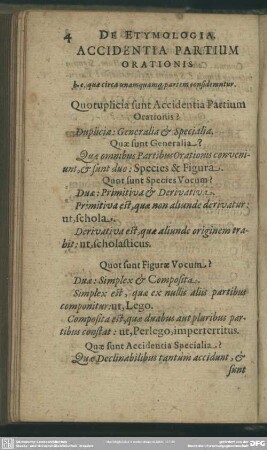 4 DE ETYMOLOGIA.
ACCIDENTIA PARTIUM
ORATIONIS
h.e. quæ circa unamquamq; partem considerantur.
Quotuplicia sunt Accidentia Partium
Orationis?
Duplicia: Generalia & Specialia.
Quæ sunt Generalia?
Quæ omnibus Partibus Orationis conveni-
unt, & sunt duo: Species & Figura.
Quot sunt Species Vocum?
Duæ: Primitiva & Derivativa.
Primitiva est, quæ non aliunde derivatur:
ut, schola.
Derivativa est, quæ aliunde originem tra-
hit: ut, scholasticus.
Quot sunt Figuræ Vocum?
Duæ: Simplex & Composita.
Simplex est, quæ ex nullis aliis partibus
componitur: ut, Lego.
Composita est, quæ duabus aut pluribus par-
tibus constat: ut, Perlego, imperterritus.
Quæ sunt Accidentia Specialia?
Quæ Declinabilibus tantùm accidunt, &
sunt
DFG